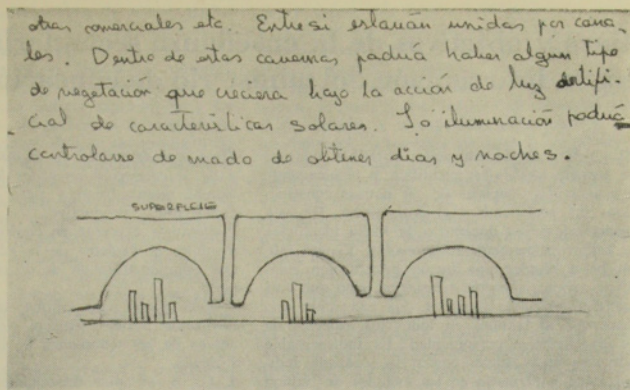 otras comerciales etc. Entre si estarian unidas por cana-
les. Dentro de estas cavernas podria haber algun tipo
de vegetación que creciera bajo la acción de luz artifi-
cial de características solares. La iluminación podria
controlarse de modo de obtener dias y noches.
SUPERFICIE